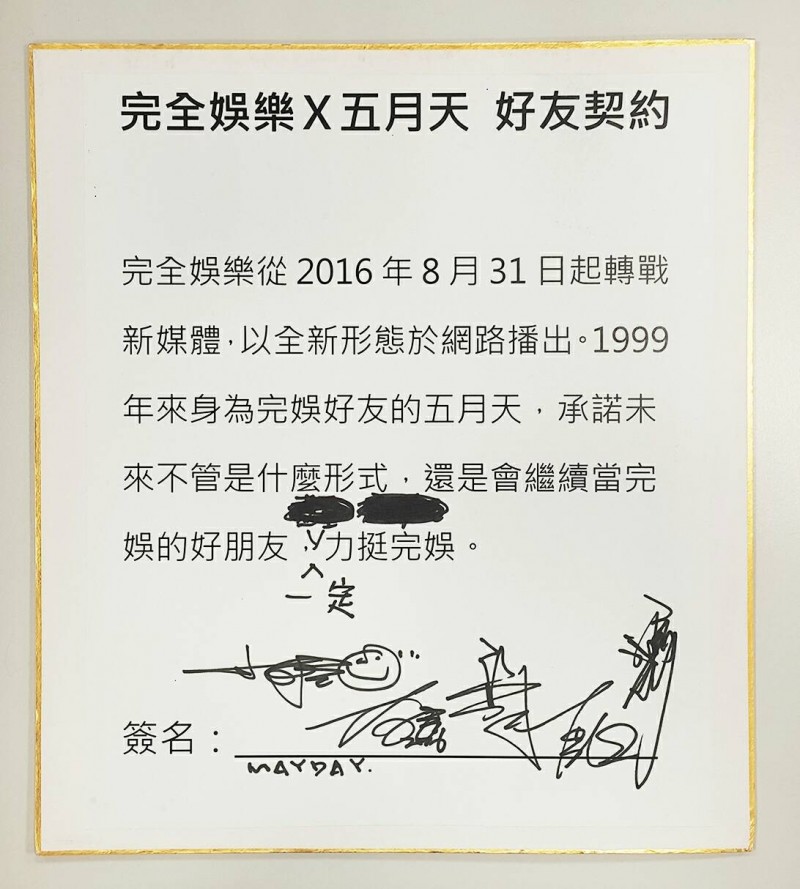 完全娛樂X五月天 好友契約
完全娛樂從2016年8月31日起轉戰
新媒體,以全新形態於網路播出。1999
年來身為完娛好友的五月天，承諾未
來不管是什麼形式，還是會繼續當完
娛的好朋友，力挺完娛。
一定
簽名：
MAYDAY.